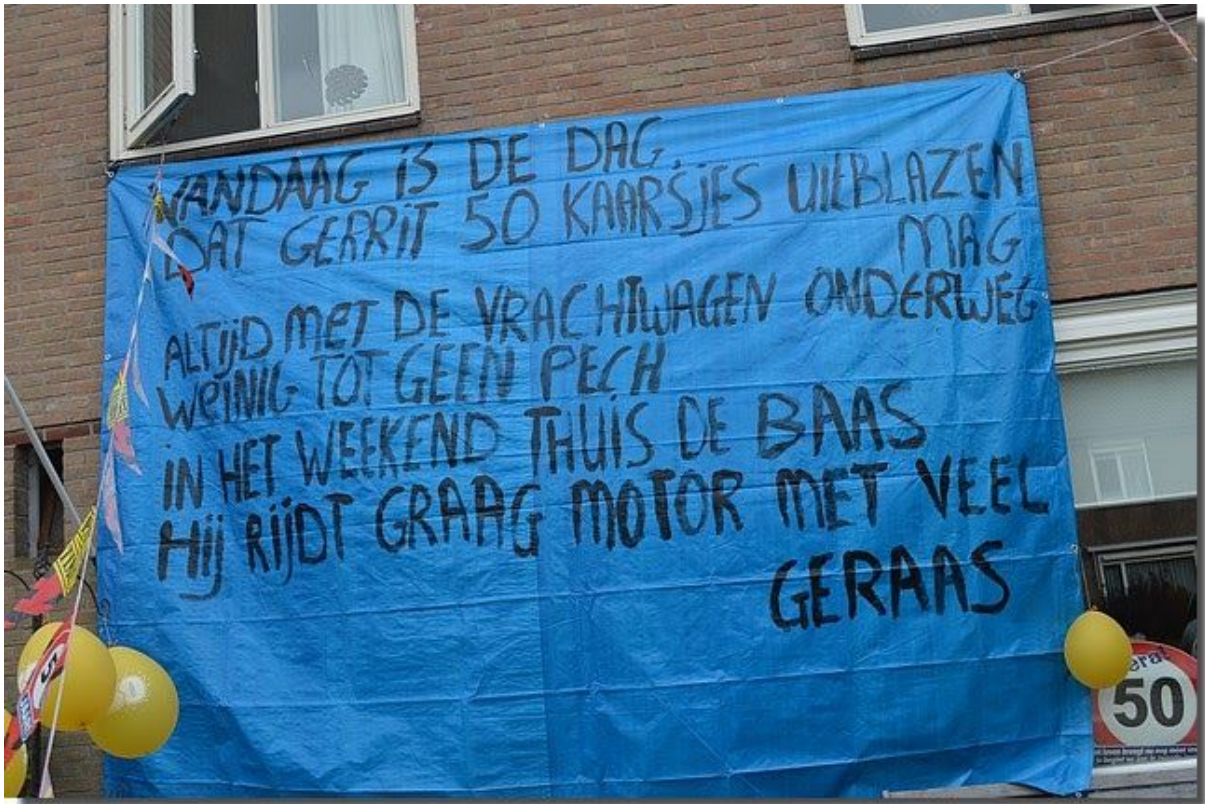 VANDAAG iS DE DAG.
DAT GERRiT 50 KAARSJES UitBLAZEN
MAG
ALTijD MET DE VRACHTWAGEN ONDERWEG
WEiNiG TOT GEEN PECH
iN HET WEEKEND THUiS DE BAAS
Hij RijDT GRAAG MOTOR MET VEEL
GERAAS
50